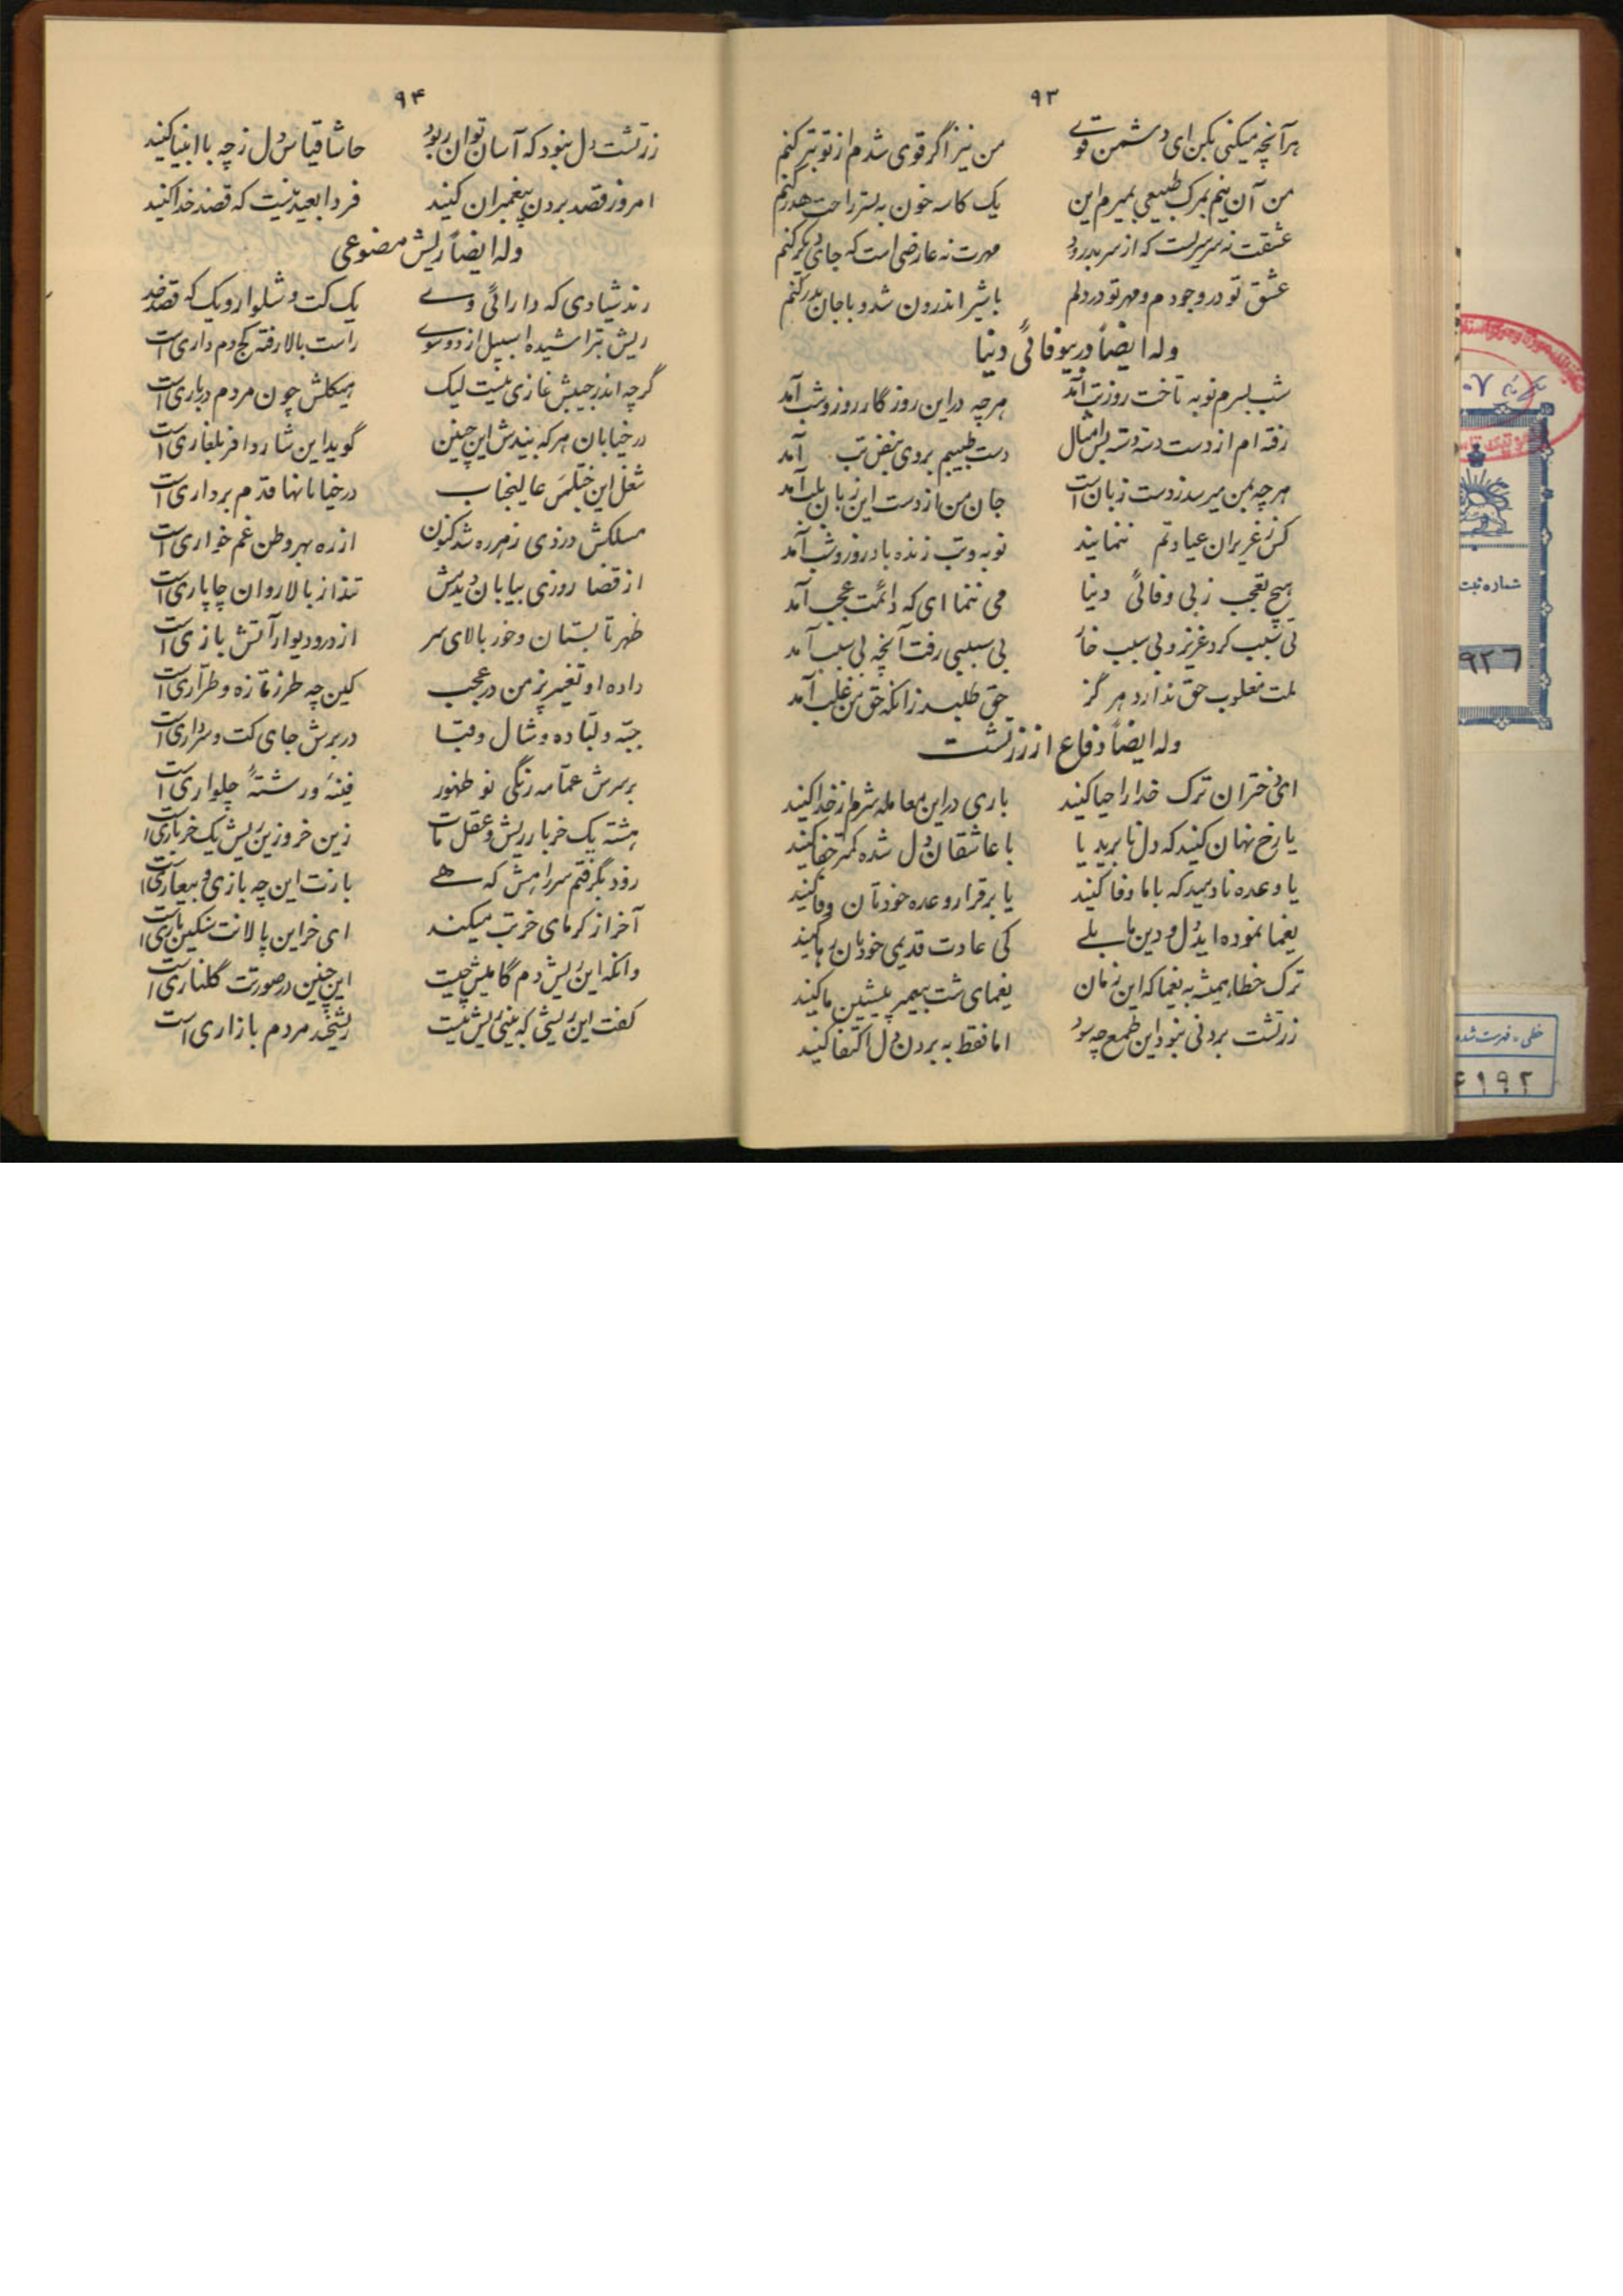 ۹۳
هر آنچه میکنی بکن ای دشمن قوی من نیز اگر قوی شدم از تو بتر کنم
من آن نیم بمرگ طبیعی بمیرم این یک کاسه خون به بستر راحت هدر کنم
عشقت نه سرسریست که از سر بدر رود مهرت نه عارضی است که جای دگر کنم
عشق تو در وجودم و مهر تو در دلم با شیر اندرون شد و با جان بدر کنم
وله ایضاً در بیوفائی دنیا
شب بسرم نوبه تاخت روز تب آمد هر چه در این روزگار روز و شب آمد
رفته ام از دست دسته دسته بس امثال دست طبیبم بروی نبض تب آمد
هر چه بمن میرسد ز دست زبان است جان من از دست این زبان بلب آمد
کس ز عزیزان عیادتم ننمایند نوبه و تب زنده باد روز و شب آمد
هیچ تعجب ز بی وفائی دنیا می ننما ای که دائمت عجب آمد
بی سبب کرد عزیز و بی سبب خار بی سببی رفت آنچه بی سبب آمد
ملت مغلوب حق ندارد هرگز حق طلبد زانکه حق من غلب آمد
وله ایضاً دفاع از زرتشت
ای دختران ترک خدا را حیا کنید باری در این معامله شرم از خدا کنید
یا رخ نهان کنید که دل نابرید یا با عاشقان دل شده کمتر جفا کنید
یا وعده نادهید که با ما وفا کنید یا برقرار وعده خودتان وفا کنید
یغما نموده اید دل و دین ما بلی کی عادت قدیمی خودتان رها کنید
ترک خطا همیشه به یغما که این زمان یغمای شت پیمبر پیشین ما کنید
زرتشت بردنی نبود این طمع چه سود اما فقط به بردن دل اکتفا کنید
۹۴
زرتشت دل نبود که آسان توان ربود حاشا قیاس دل ز چه با انبیا کنید
امروز قصد بردن پیغمبران کنید فردا بعید نیست که قصد خدا کنید
وله ایضاً ریش مصنوعی
رند شیادی که دارائی وی یک کت و شلوار و یک که قصد خد
ریش بتراشیده اسبیل از دو سوی راست بالا رفته کج دم داری است
گرچه اندر جیبش غازی نیست لیک هیکلش چون مردم درباری است
در خیابان هر که بیندش این چنین گوید این شارژدافر بلغاری است
شغل این ختلمس عالیجناب در خیابانها قدم برداری است
مسلکش دزدی ز هر ره شد کنون از ره بهر وطن غم خواری است
از قضا روزی بیابان دیدمش تند از بالا روان چاپاری است
ظهر تابستان و خور بالای سر از در و دیوار آتش بازی است
داده او تغییر بز من در عجب کین چه طرز تازه و طراری است
جبه و لباده و شال و قبا در برش جای کت و سرداری است
بر سرش عمامه رنگی نو ظهور فینهٔ و رشتهٔ چلواری است
هشته یک خربار ریش و عقل مات زین خر و زین ریش یک خرباری است
زود بگرفتم سر راهش که هی بازت این چه بازی و بیعاری است
آخر از گرمای خر تب میکند ای خر این پالانت سنگین باری است
وانگه این ریش دم گامیش چیست این چنین در صورتت گلناری است
گفت این ریشی که بینی ریش نیست ریشخند مردم بازاری است
شماره ثبت
۹۲۶
خطی - فهرست شده
۴۱۹۲